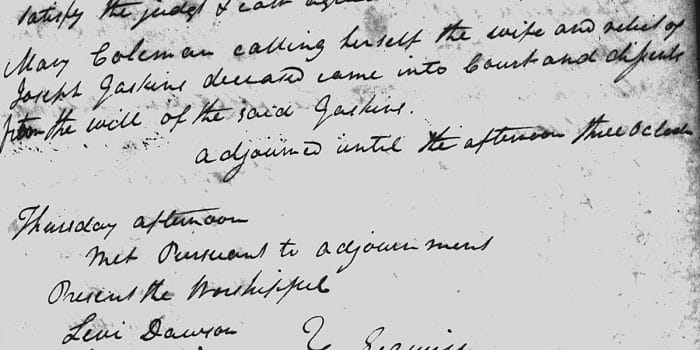 satisfy the judgt & cost
Mary Coleman calling herself the wife and relict of
Joseph Gaskins deceased came into Court and dissents
from the will of the said Gaskins.
adjourned until the afternoon three oClock
Thursday afternoon
Met Pursuant to adjournment
Present the Worshipful
Levi Dawson
Esquires